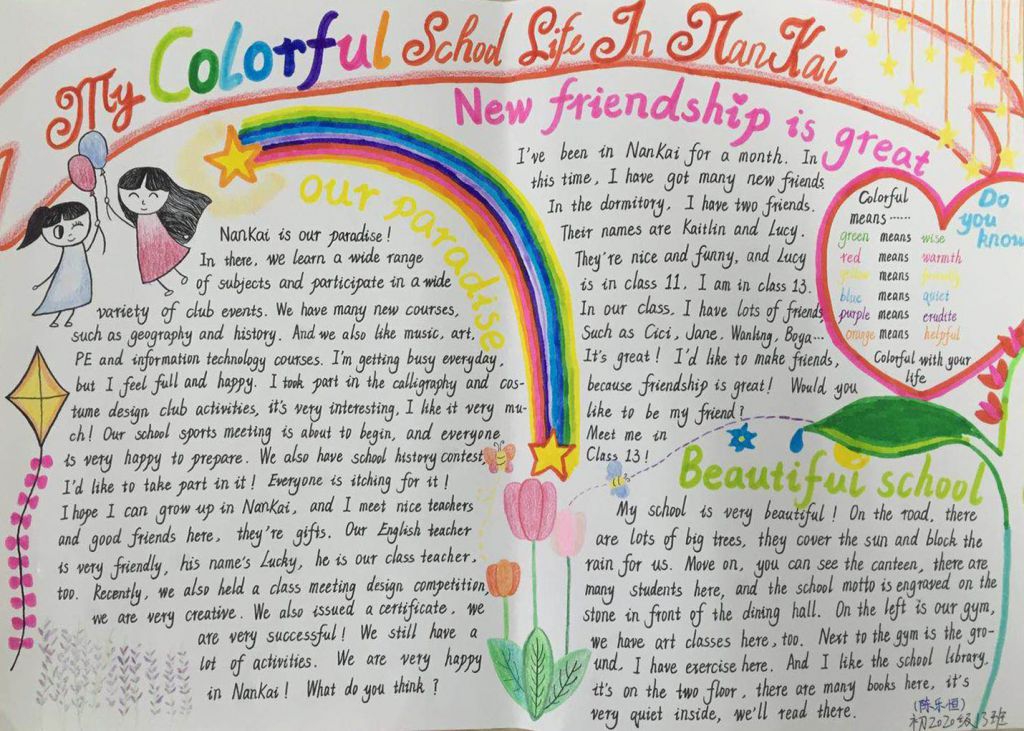 My Colorful School Life In NanKai
our paradise
NanKai is our paradise!
In there, we learn a wide range
of subjects and participate in a wide
variety of club events. We have many new courses,
such as geography and history. And we also like music, art,
PE and information technology courses. I'm getting busy everyday,
but I feel full and happy. I took part in the calligraphy and cos-
tume design club activities, it's very interesting, I like it very mu-
ch! Our school sports meeting is about to begin, and everyone
is very happy to prepare. We also have school history contest,
I'd like to take part in it! Everyone is itching for it!
I hope I can grow up in NanKai, and I meet nice teachers
and good friends here, they're gifts. Our English teacher
is very friendly, his name's Lucky, he is our class teacher,
too. Recently, we also held a class meeting design competition,
we are very creative. We also issued a certificate, we
are very successful! We still have a
lot of activities. We are very happy
in NanKai! What do you think?
New friendship is great
I've been in NanKai for a month. In
this time, I have got many new friends.
In the dormitory, I have two friends.
Their names are Kaitlin and Lucy.
They're nice and funny, and Lucy
is in class 11. I am in class 13.
In our class, I have lots of friends
Such as Cici, Jane, Wanking, Boya...
It's great! I'd like to make friends,
because friendship is great! Would you
like to be my friend?
Meet me in
Class 13!
Do
you
know
Colorful
means ......
green means wise
red means warmth
yellow means friendly
blue means quiet
purple means erudite
orange means helpful
Colorful with your
life
Beautiful school
My school is very beautiful! On the road, there
are lots of big trees, they cover the sun and block the
rain for us. Move on, you can see the canteen, there are
many students here, and the school motto is engraved on the
stone in front of the dining hall. On the left is our gym,
we have art classes here, too. Next to the gym is the gro-
und, I have exercise here. And I like the school library,
it's on the two floor, there are many books here, it's
very quiet inside, we'll read there.
(陈乐恒)
初2020级13班